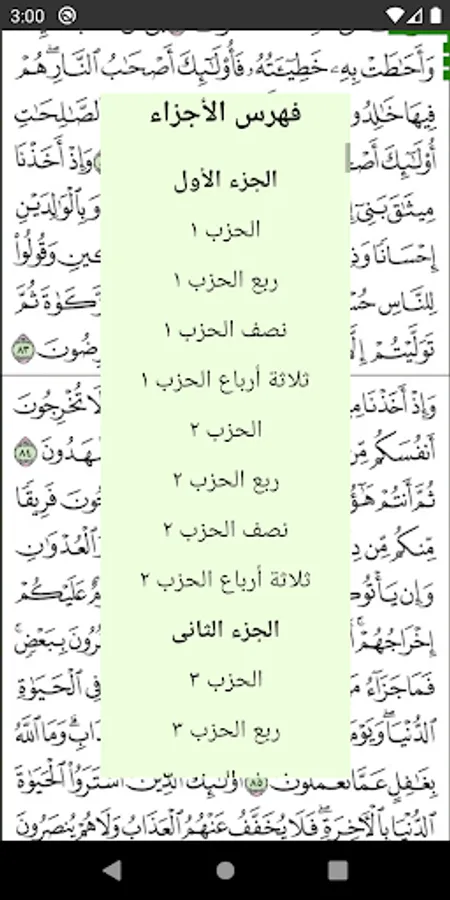 3:00
وَأَحَٰطَتْ بِهِۦ خَطِيٓـَٔتُهُۥ فَأُو۟لَٰٓئِكَ أَصْحَٰبُ ٱلنَّارِ ۖ هُمْ
فِيهَا خَٰلِدُو ٱلصَّٰلِحَٰتِ
أُو۟لَٰٓئِكَ أَصْ وَإِذْ أَخَذْنَا
مِيثَٰقَ بَنِىٓ وَبِٱلْوَٰلِدَيْنِ
إِحْسَانًا وَذِ كِينِ وَقُولُوا۟
لِلنَّاسِ حُسْ زَّكَوٰةَ ثُمَّ
تَوَلَّيْتُمْ إِلَّا رِضُونَ ٨٣
وَإِذْ أَخَذْنَا مِ لَا تُخْرِجُونَ
أَنفُسَكُم مِّن هَدُونَ ٨٤
ثُمَّ أَنتُمْ هَٰٓؤُ جُونَ فَرِيقًا
مِّنكُم مِّن دِ وَٱلْعُدْوَٰنِ
وَإِن يَأْتُوكُ مٌ عَلَيْكُمْ
إِخْرَاجُهُمْ ۚ أَ رُونَ بِبَعْضٍ ۚ
فَمَا جَزَآءُ مَ فِى ٱلْحَيَوٰةِ
ٱلدُّنْيَا ۖ وَيَوْمَ ذَابِ ۗ وَمَا ٱللَّهُ
بِغَٰفِلٍ عَمَّا تَعْمَلُونَ ٨٥ أُو۟لَٰٓئِكَ ٱلَّذِينَ ٱشْتَرَوُا۟ ٱلْحَيَوٰةَ
ٱلدُّنْيَا بِٱلْـَٔاخِرَةِ ۖ فَلَا يُخَفَّفُ عَنْهُمُ ٱلْعَذَابُ وَلَا هُمْ يُنصَرُونَ
فهرس الأجزاء
الجزء الأول
الحزب ١
ربع الحزب ١
نصف الحزب ١
ثلاثة أرباع الحزب ١
الحزب ٢
ربع الحزب ٢
نصف الحزب ٢
ثلاثة أرباع الحزب ٢
الجزء الثانى
الحزب ٣
ربع الحزب ٣